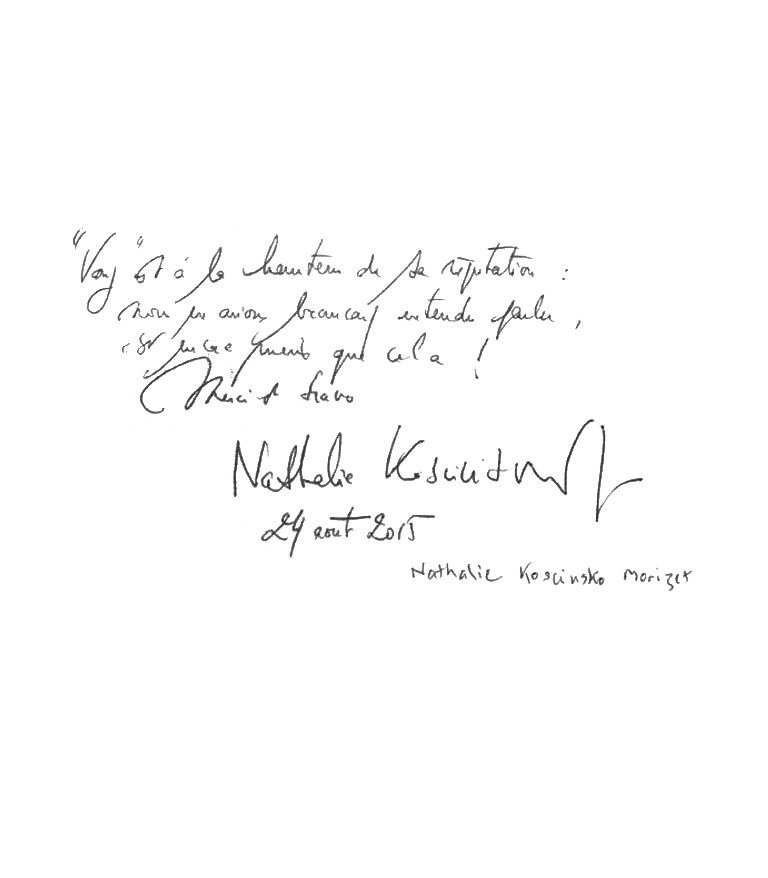 "Vany" est à la hauteur de sa réputation :
nous en avions beaucoup entendu parler,
c'est encore mieux que cela !
Merci et bravo
Nathalie Kosciusko
24 août 2015
Nathalie Koscinsko Morizet